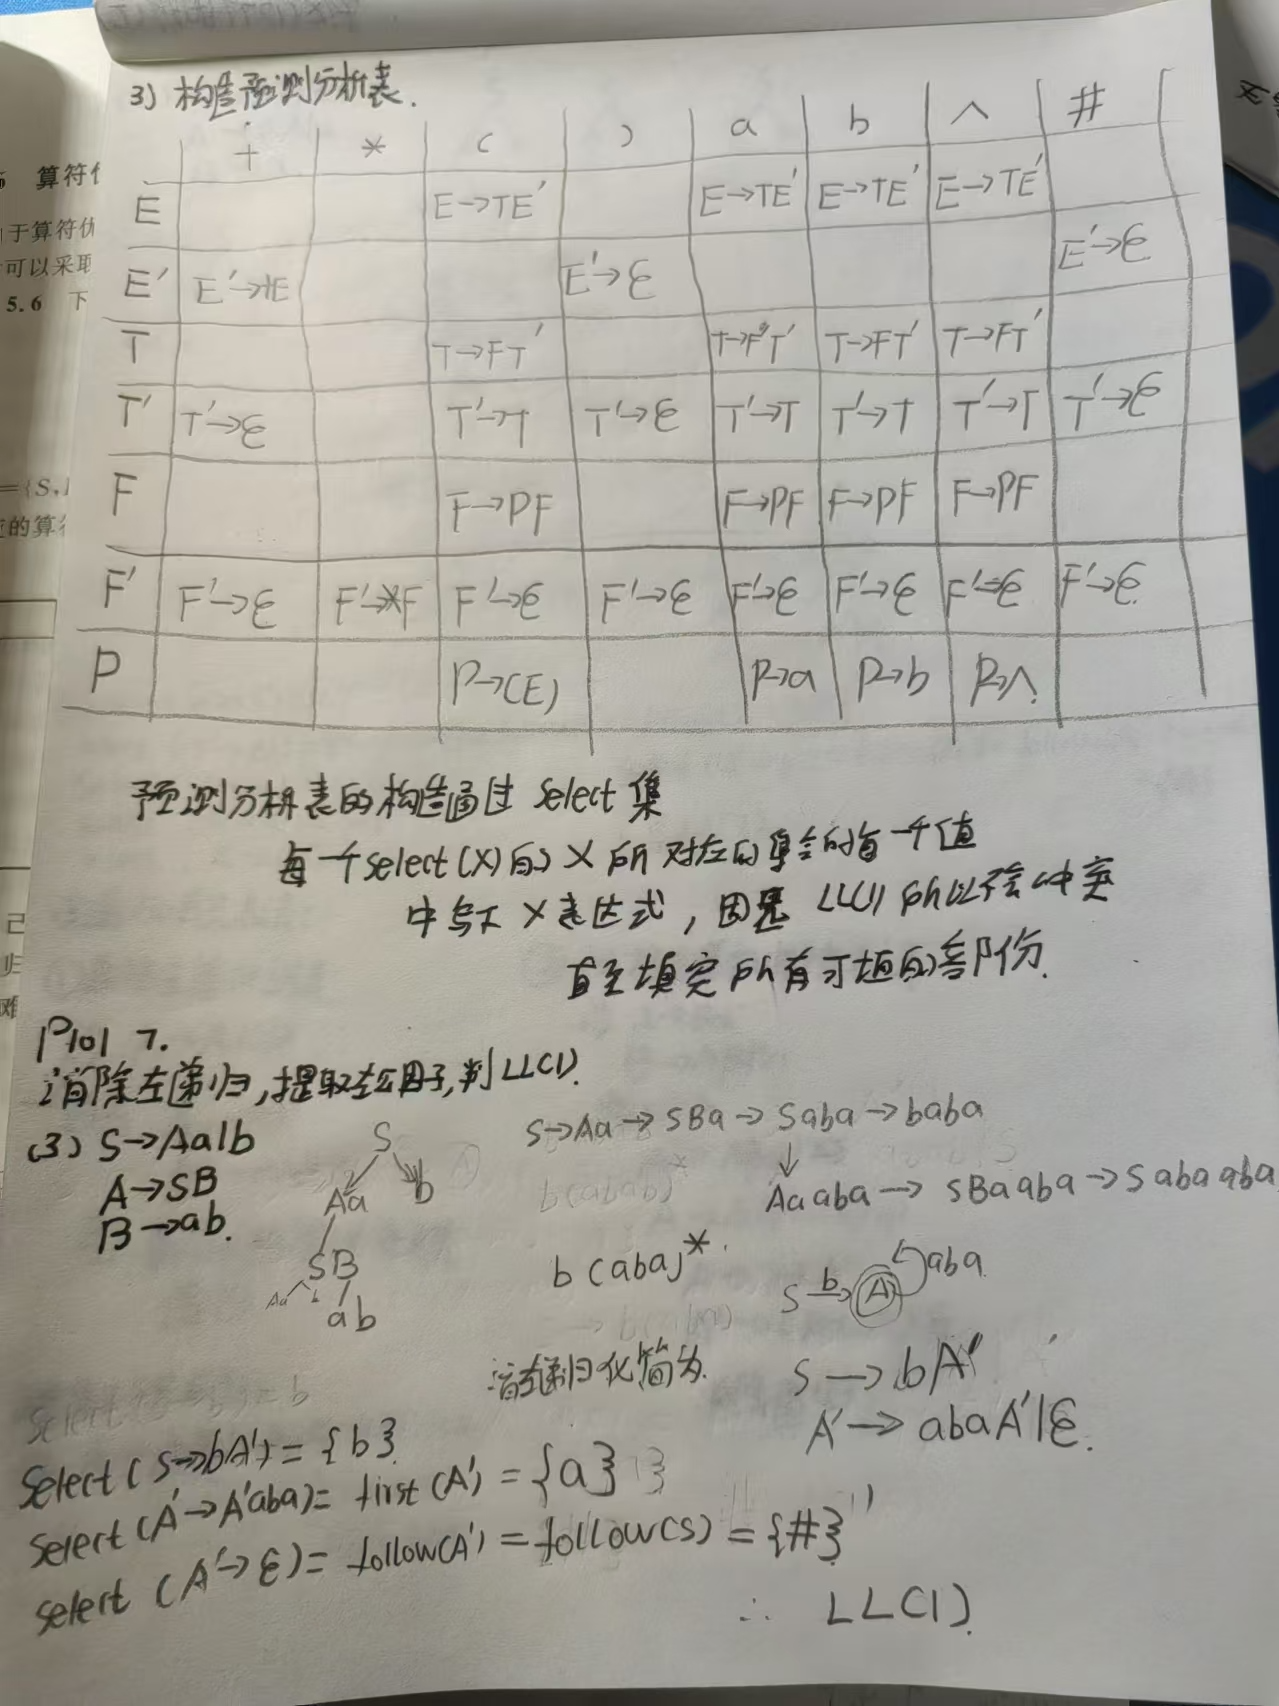 3) 构造预测分析表.
+ * ( ) a b ∧ #
E E→TE′ E→TE′ E→TE′ E→TE′
E′ E′→+E E′→ε E′→ε
T T→FT′ T→FT′ T→FT′ T→FT′
T′ T′→ε T′→T T′→ε T′→T T′→T T′→T T′→ε
F F→PF F→PF F→PF F→PF
F′ F′→ε F′→*F F′→ε F′→ε F′→ε F′→ε F′→ε F′→ε
P P→(E) P→a P→b P→∧.
预测分析表的构造通过 select 集
每一个select(X)的X所对应的集合的每一个值
中写下X表达式，因是 LL(1) 所以不会冲突
直至填完所有可填的部份.
P101 7.
消除左递归,提取左公因子,判LL(1).
(3) S→Aa|b
A→SB
B→ab.
S
Aa b
SB
Aa b
ab
S→Aa→SBa→Saba→baba
↓
Aaaba→ SBaaba→Sabaaba
b(abab)*
b(aba)*.
S b→ A aba
消左递归化简为.
S→bA′
A′→abaA′|ε.
Select(S→bA′)={b}
Select(A′→A′aba)= first(A′)={a}
select (A′→ε)= follow(A′)=follow(S)={#}
∴ LL(1).
算符优
于算符优
可以采取
5.6 下
={S,
的算符
己
归